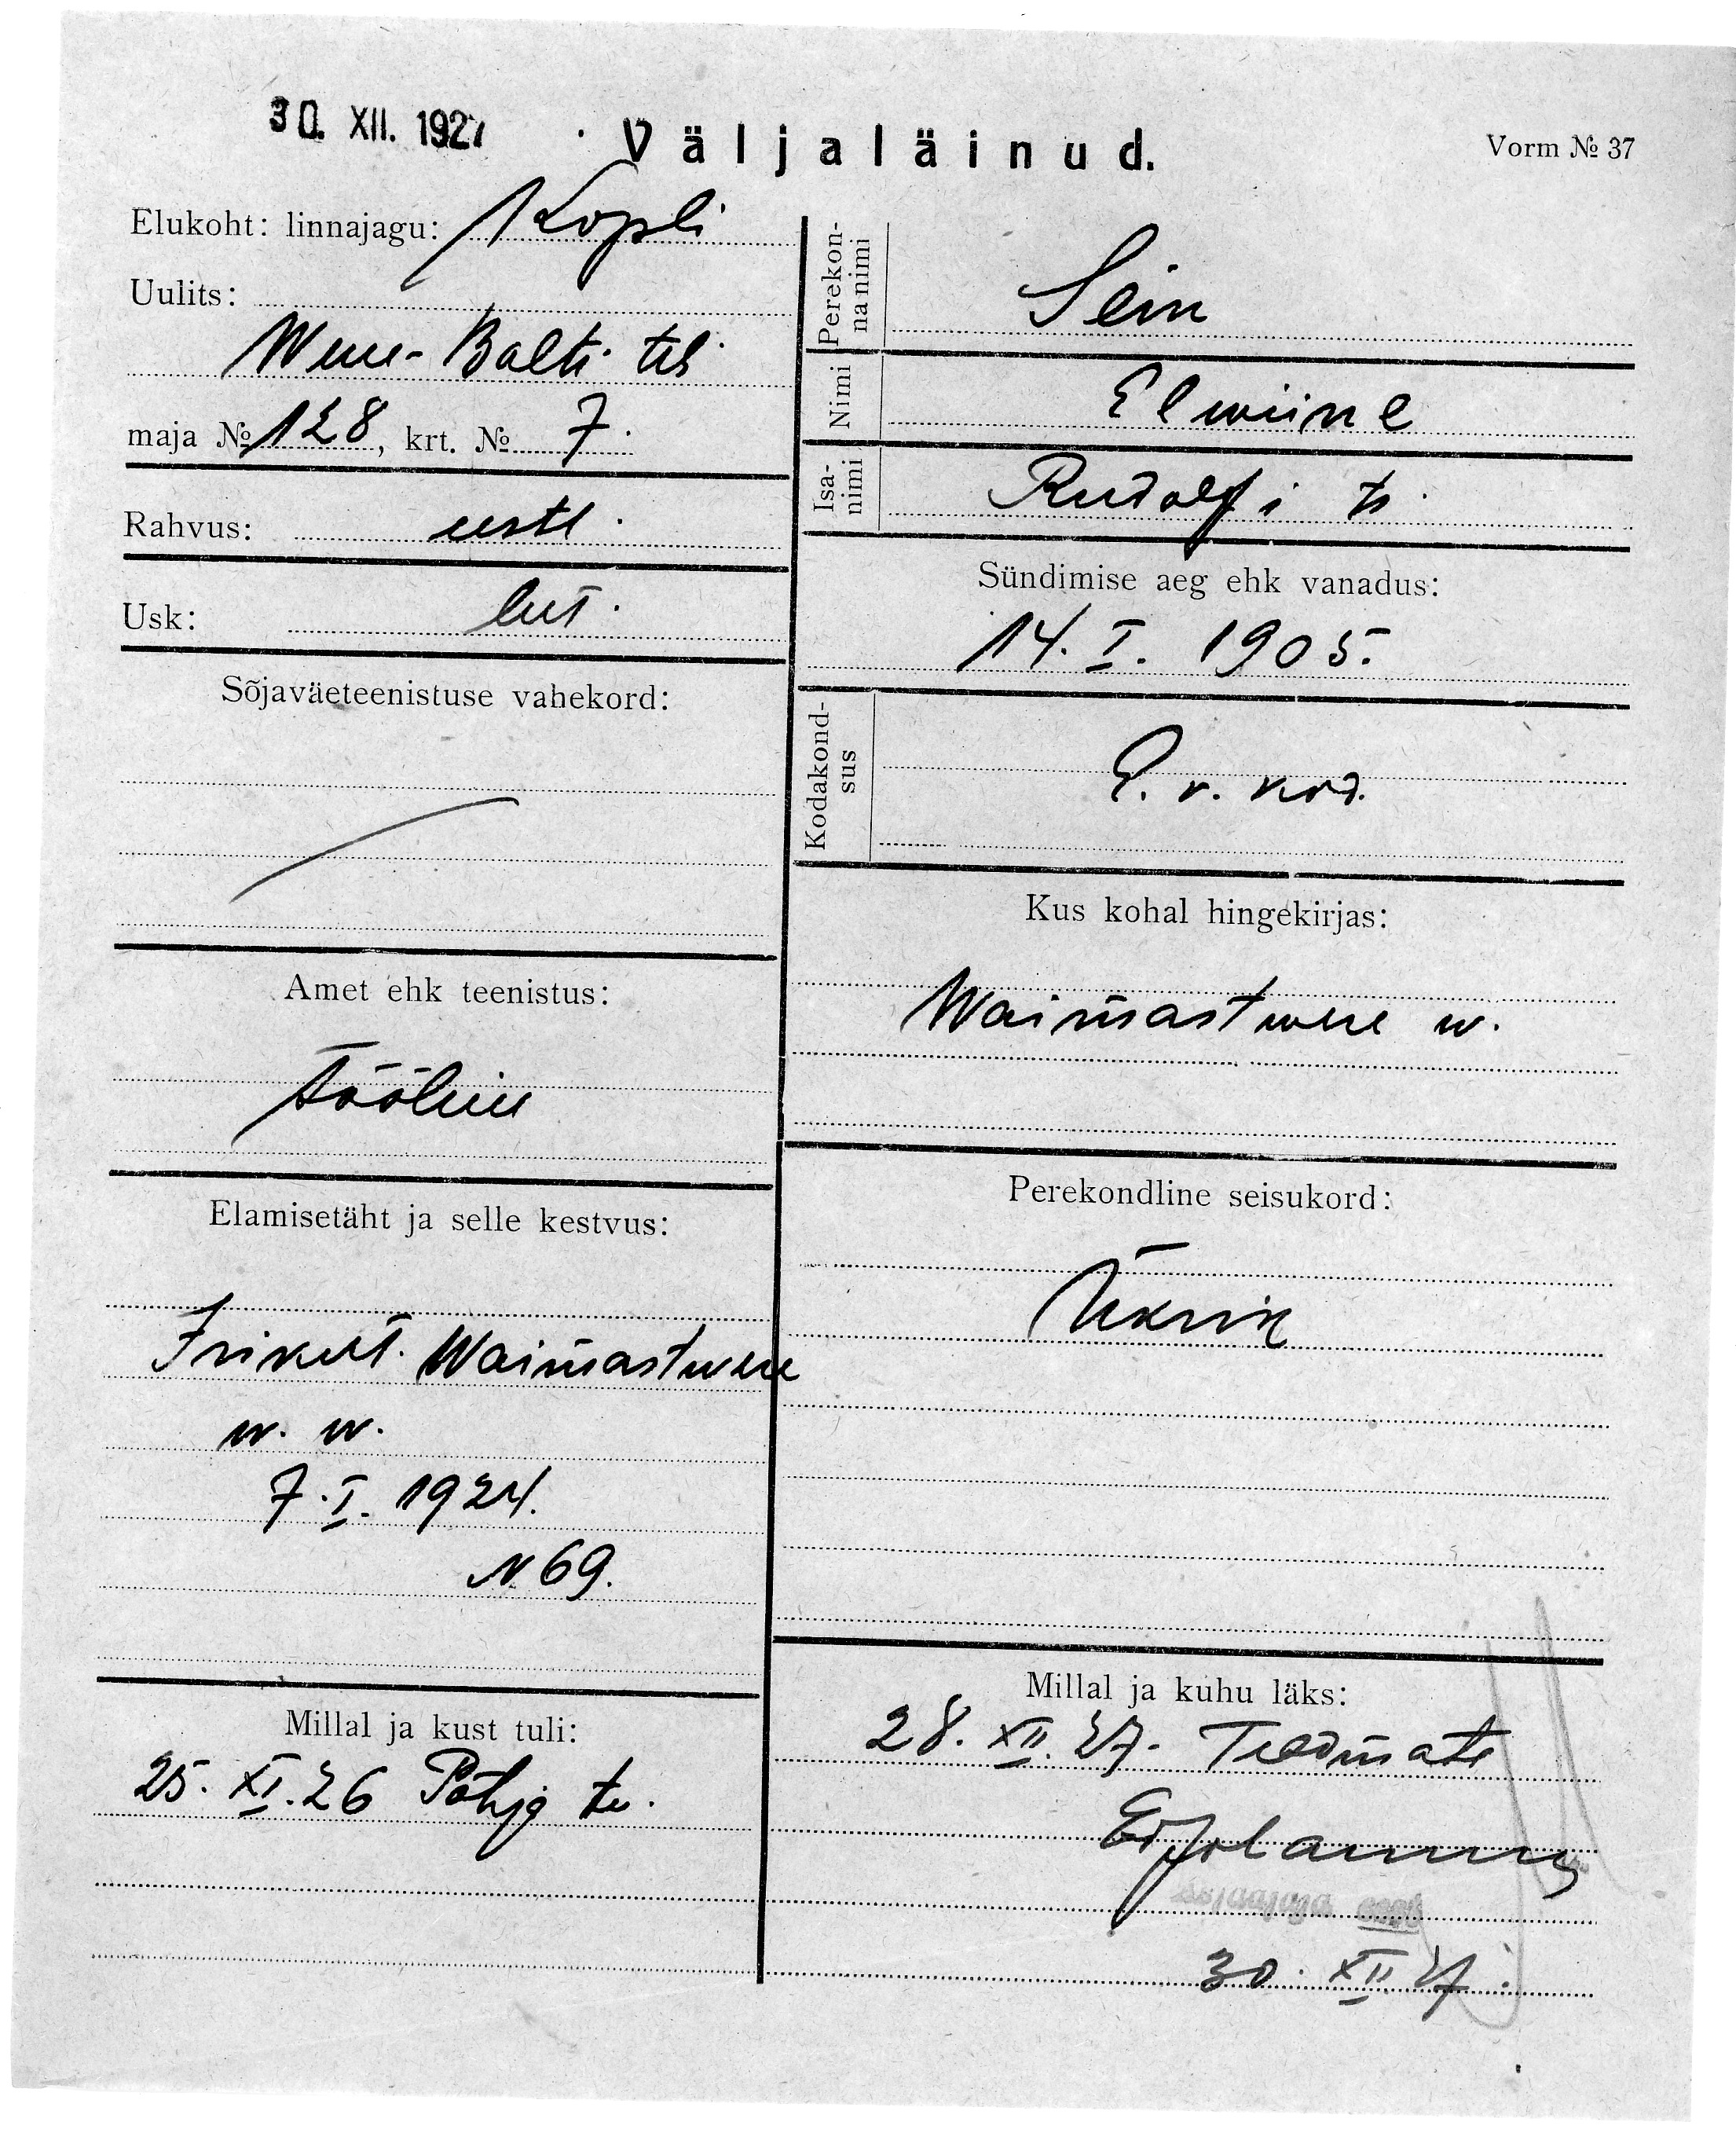 30. XII. 1927
Väljaläinud.
Vorm № 37
Elukoht: linnajagu: Kopli
Uulits:
Wene-Balti teh.
maja № 128, krt. № 7.
Rahvus: eestl.
Usk: lut.
Sõjaväeteenistuse vahekord:
Amet ehk teenistus:
Tööline
Elamisetäht ja selle kestvus:
Isikut. Waimastwere
w. w.
7. I. 1924.
N 69.
Millal ja kust tuli:
25. XI. 26 Põhja
Perekon-
na nimi
Sein
Nimi
Elwiine
Isa-
nimi
Rudolfi t.
Sündimise aeg ehk vanadus:
14. I. 1905.
Kodakond-
sus
E. v. kod.
Kus kohal hingekirjas:
Waimastwere w.
Perekondline seisukord:
Üksik
Millal ja kuhu läks:
28. XII. 27. Teadmata
30. XII 27.